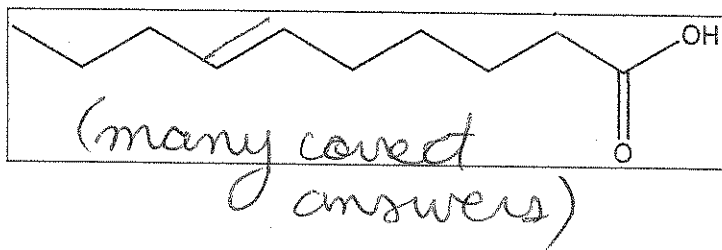 OH
O
(many correct
answers)